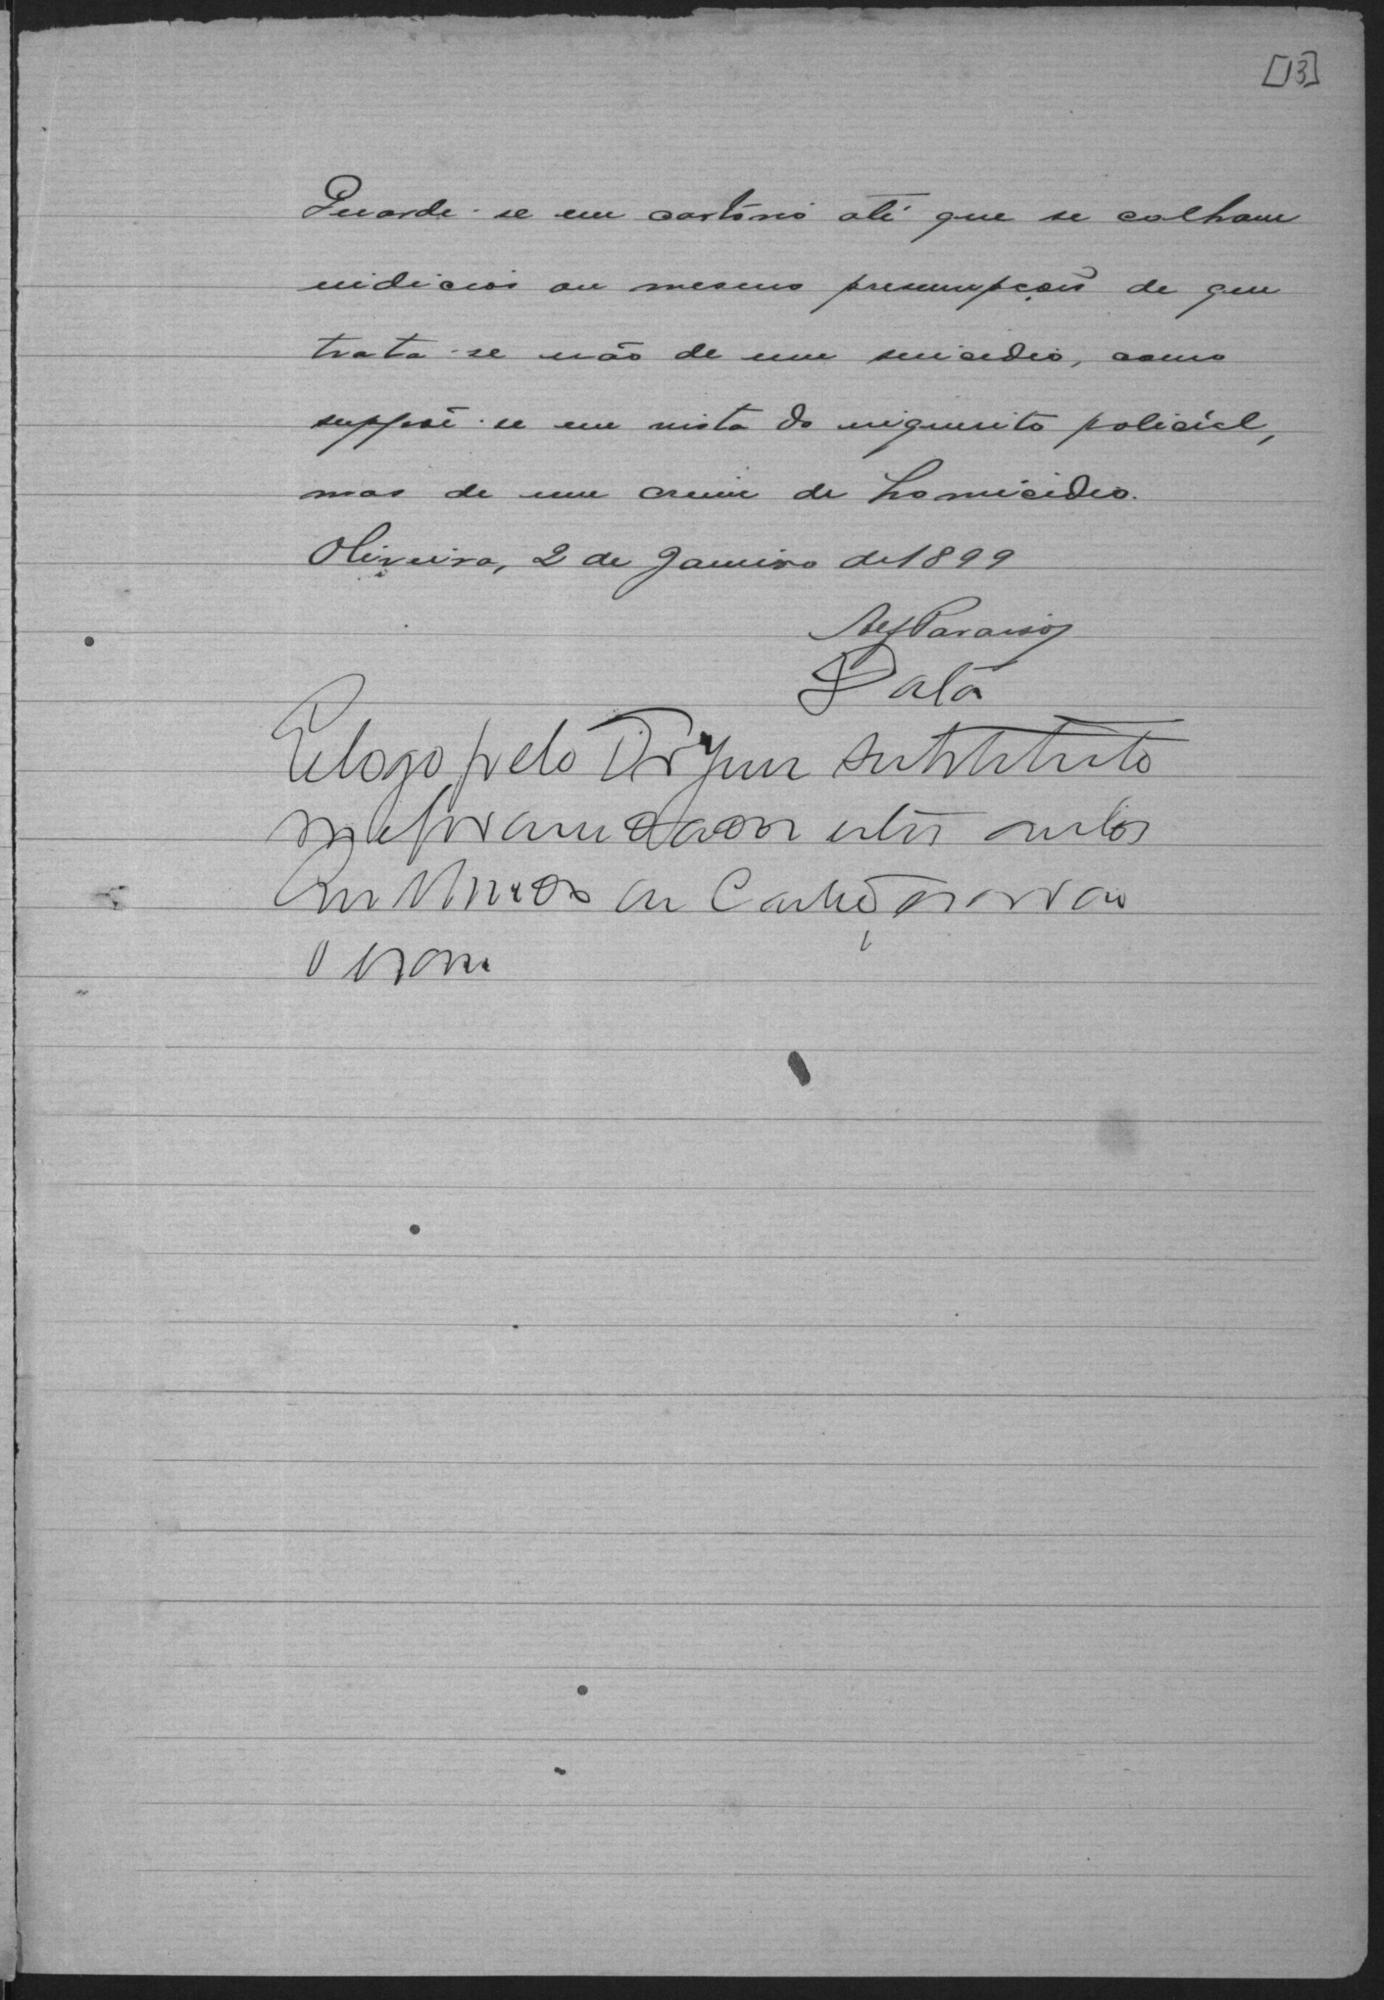 [13]
Guarde-se em cartorio até que se colham
indicios ou mesmo presumpções de que
trata-se não de um suicidio, como
suppõe-se em vista do inquerito policial,
mas de um crime de homicidio.
Oliveira, 2 de Janeiro de 1899
Paraiso
Data
E logo pelo Dr Juiz substituto
me foram dados estes autos
em